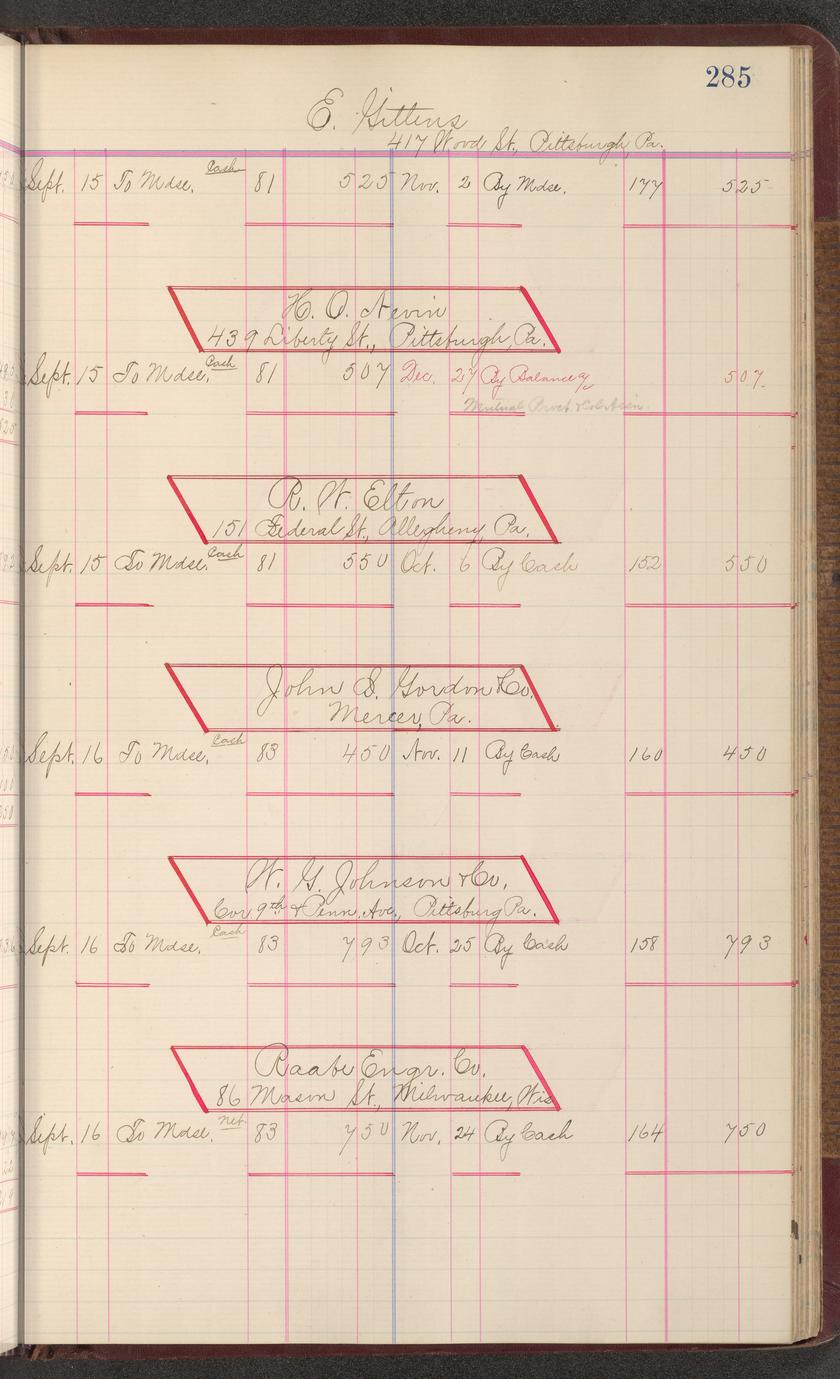 285
E. Gittens
417 Wood St., Pittsburgh, Pa.
Sept. 15 To Mdse. Cash 81 525 Nov. 2 By Mdse. 177 525
H. O. Nevin
439 Liberty St., Pittsburgh, Pa.
Sept. 15 To Mdse. Cash 81 507 Dec. 27 By Balance a/c 507.
Mutual
R. W. Elton
151 Federal St., Allegheny, Pa.
Sept. 15 To Mdse. Cash 81 550 Oct. 6 By Cash 152 550
John S. Gordon & Co.
Mercer, Pa.
Sept. 16 To Mdse. Cash 83 450 Nov. 11 By Cash 160 450
W. G. Johnson & Co.
Cor 9th & Penn. Ave., Pittsburg Pa.
Sept. 16 To Mdse. Cash 83 793 Oct. 25 By Cash 158 793
Raabe Engr. Co.
86 Mason St., Milwaukee, Wis
Sept. 16 To Mdse. Net. 83 750 Nov. 24 By Cash 164 750